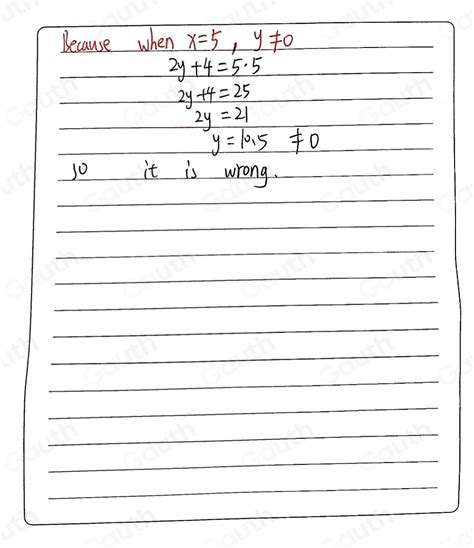 Because when x=5, y≠0
2y+4=5·5
2y+4=25
2y=21
y=10.5 ≠0
so it is wrong.